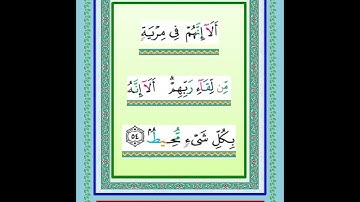 أَلَآ إِنَّهُمْ فِى مِرْيَةٍ
مِّن لِّقَآءِ رَبِّهِمْ ۗ أَلَآ إِنَّهُۥ
بِكُلِّ شَىْءٍ مُّحِيطٌۢ ﴿٥٤﴾